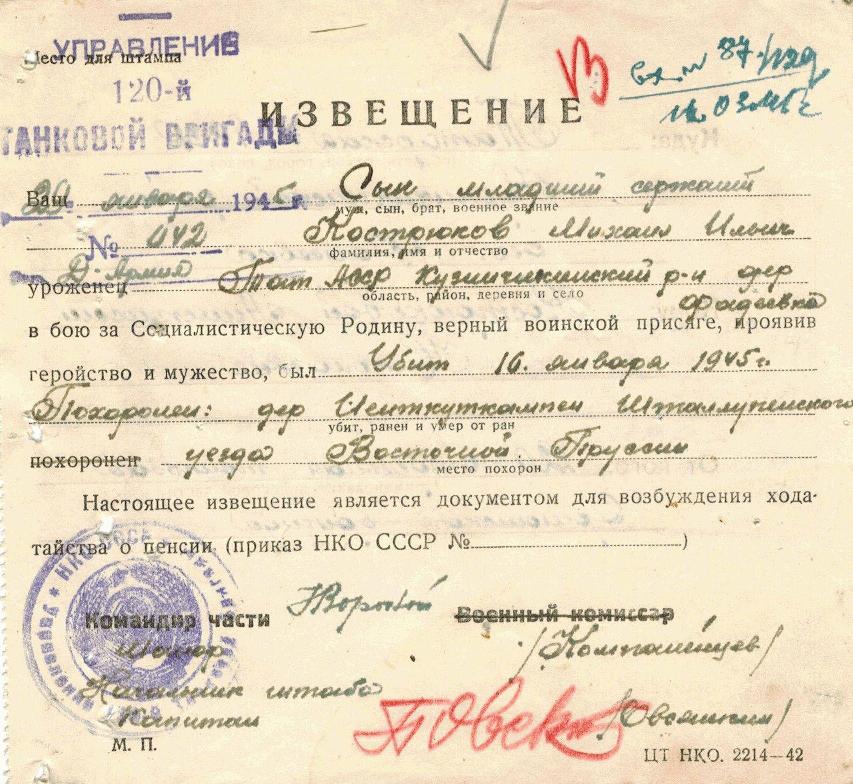 УПРАВЛЕНИЕ
Место для штампа
120-й
ТАНКОВОЙ БРИГАДЫ
ИЗВЕЩЕНИЕ
вх. № 87
Ваш Сын младший сержант
муж, сын, брат, военное звание
29 января 1945 г.
№ 042
Кострюков Михаил Ильич
фамилия, имя и отчество
Д. Армия
уроженец Тат АССР р-н дер
область, район, деревня и село
Фадеевка
в бою за Социалистическую Родину, верный воинской присяге, проявив
геройство и мужество, был Убит 16 января 1945 г.
Похоронен: дер Шталлупенского
убит, ранен и умер от ран
похоронен уезда Восточной Пруссии
место похорон
Настоящее извещение является документом для возбуждения хода-
тайства о пенсии (приказ НКО СССР № )
Командир части Военный комиссар
Майор
Начальник штаба
Капитан /Овсянкин/
М. П.
ЦТ НКО. 2214—42